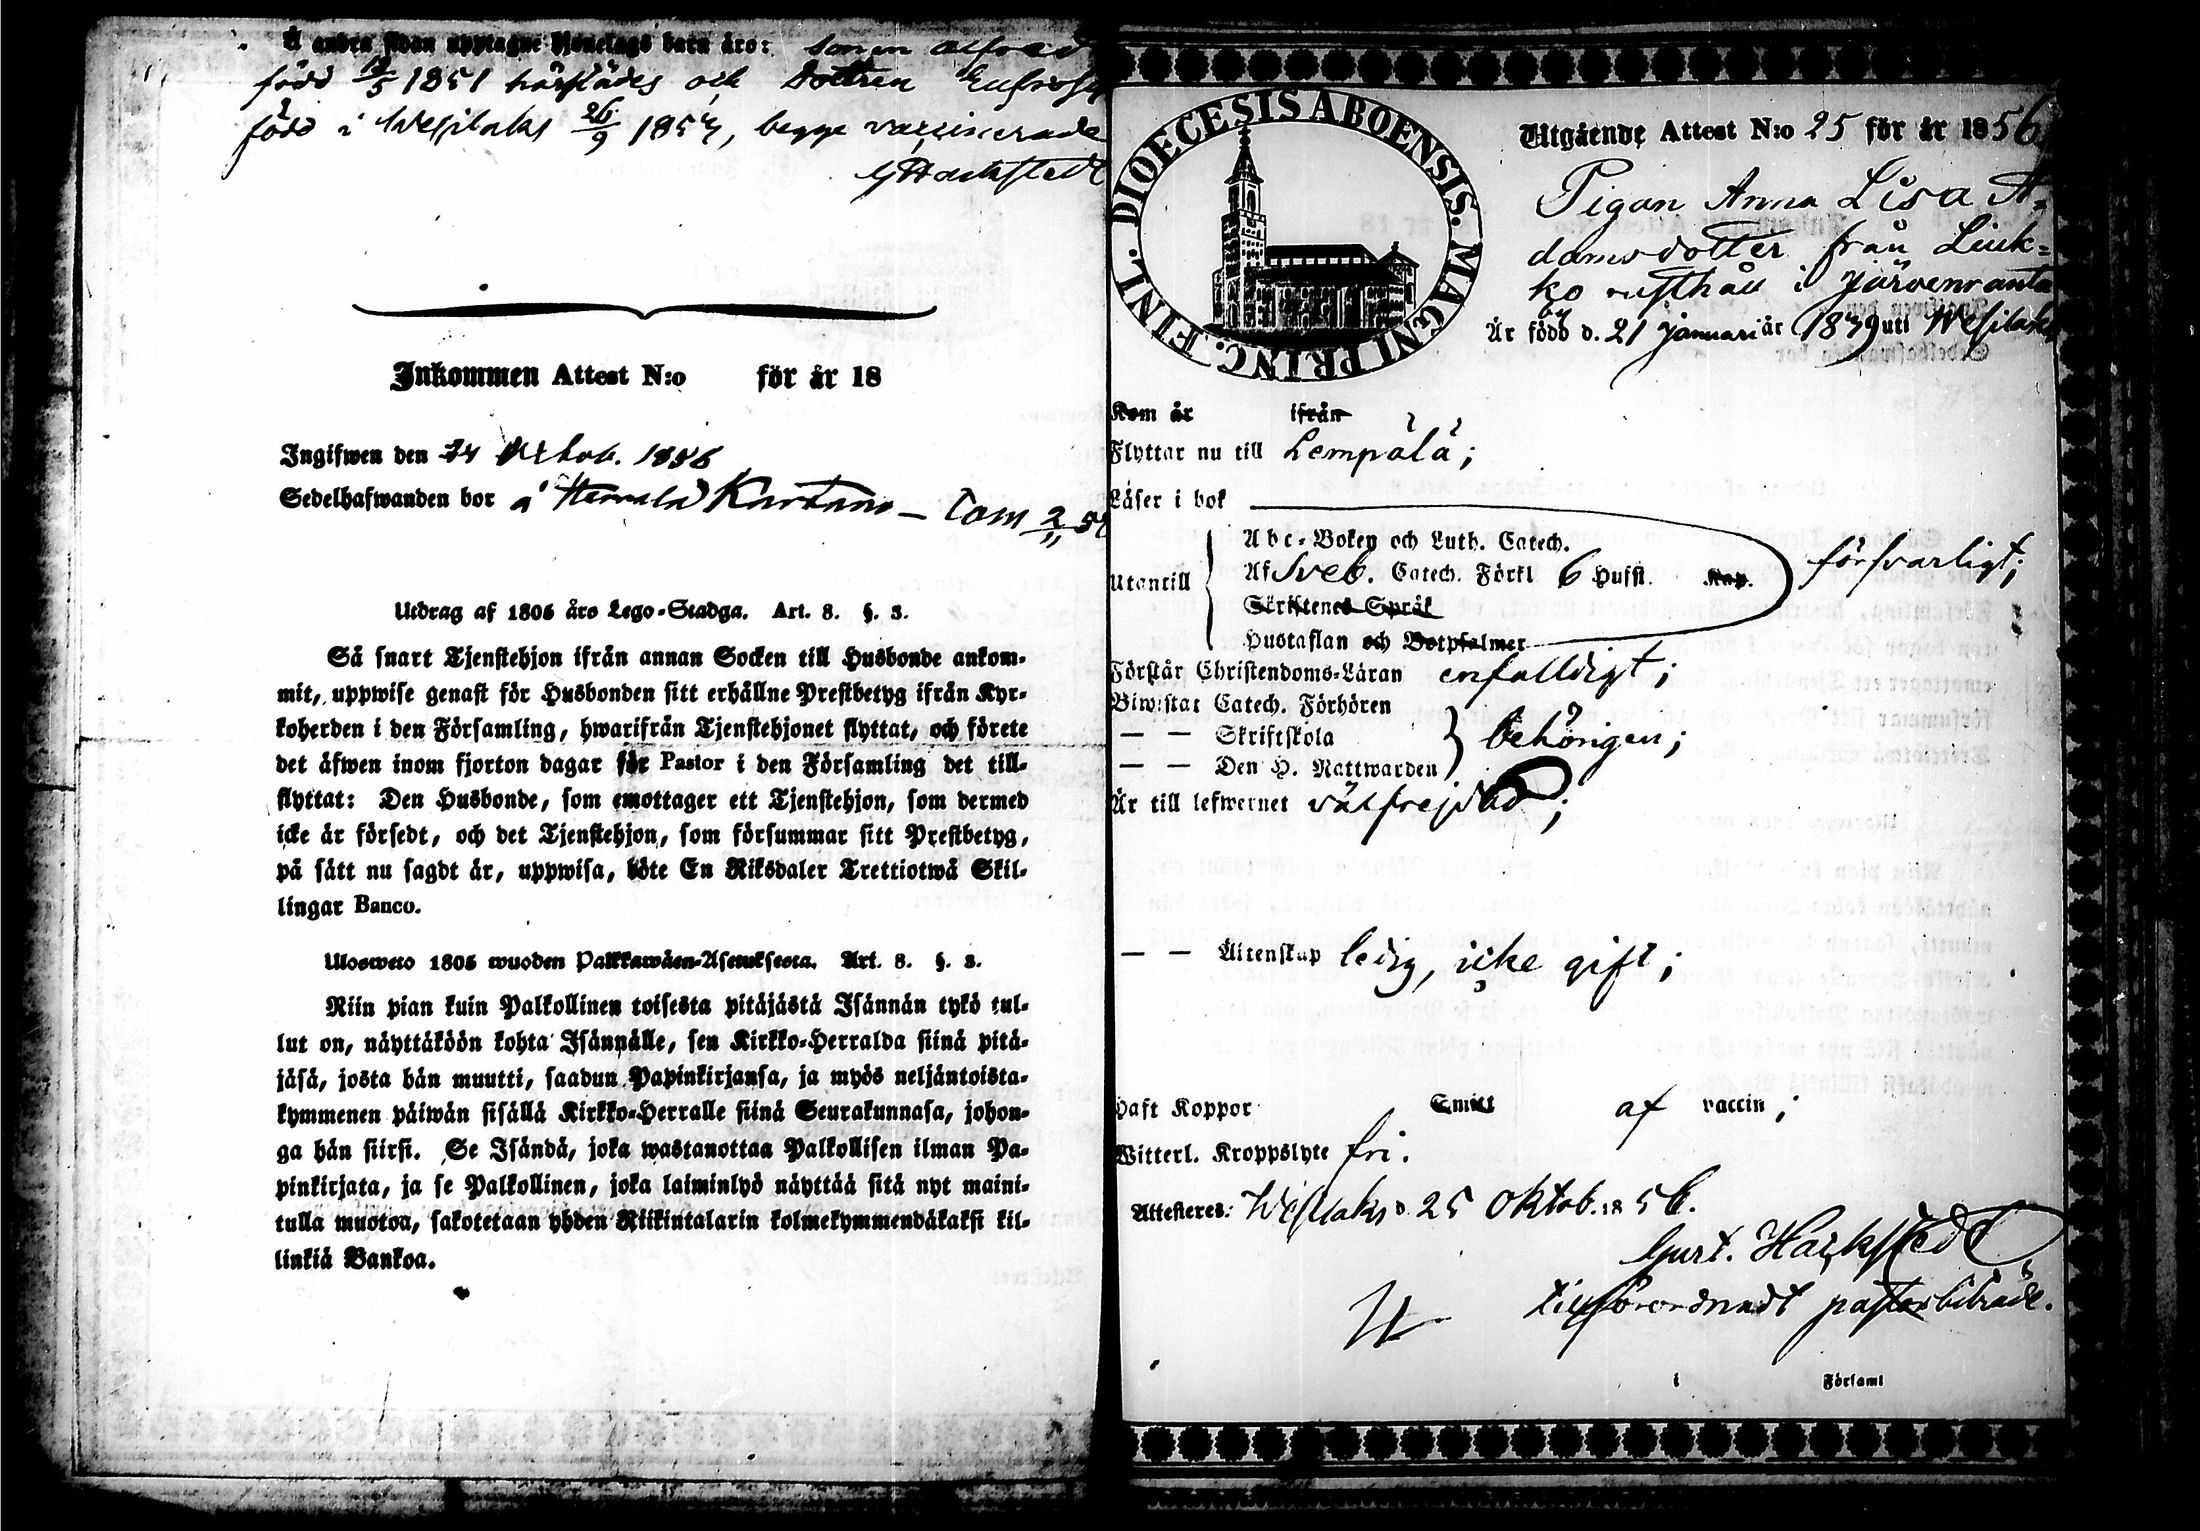 å andra sidan upptagne Hjonelags barn äro: sonen Alfred
född 12/5 1851 härstädes och Dottren
född i Wesilaks 26/9 1854, begge vaccinerade
GHackstedt
Inkommen Attest N:o för år 18
Ingifwen den 24 Oktob. 1856
Sedelhafwanden bor å Herrala Kartano – Com 2/11
Utdrag af 1805 års Lego-Stadga. Art. 8. §. 3.
Så snart Tjenstehjon ifrån annan Socken till Husbonde ankom-
mit, uppwise genast för Husbonden sitt erhållne Prestbetyg ifrån Kyr-
koherden i den Församling, hwarifrån Tjenstehjonet flyttat, och förete
det äfwen inom fjorton dagar för Pastor i den Församling det till-
flyttat: Den Husbonde, som emottager ett Tjenstehjon, som dermed
icke är försedt, och det Tjenstehjon, som försummar sitt Prestbetyg,
på sätt nu sagdt är, uppwisa, böte En Riksdaler Trettiotwå Skil-
lingar Banco.
Ulosweto 1805 wuoden Palkkawäen-Asetuksesta. Art. 8. §. 3.
Niin pian kuin Palkollinen toisesta pitäjästä Isännän tykö tul-
lut on, näyttäköön kohta Isännälle, sen Kirkko-Herralda siinä pitä-
jäsä, josta hän muutti, saadun Papinkirjansa, ja myös neljäntoista-
kymmenen päiwän sisällä Kirkko-Herralle siinä Seurakunnasa, johon-
ga hän siirsi. Se Isändä, joka wastanottaa Palkollisen ilman Pa-
pinkirjata, ja se Palkollinen, joka laiminlyö näyttää sitä nyt maini-
tulla muotoa, sakotetaan yhden Riikintalarin kolmekymmendäkaksi kil-
linkiä Bankoa.
DIOECESIS ABOENSIS. MAGNI PRINC. FINL.
Utgående Attest N:o 25 för år 1856
Pigan Anna Lisa A-
damsdotter från Liuk-
ko rusthåll i Järvenranta
by
Är född d. 21 Januari år 1839 uti Wesilaks
Kom år ifrån
Flyttar nu till Lempälä;
Läser i bok
Abc-Boken och Luth. Catech.
Utantill Af Sveb. Catech. Förkl 6 Hufst. Kap. försvarligt;
Skriftenes Språk
Hustaflan och Botpsalmer
Förstår Christendoms-Läran enfalldigt;
Biwistat Catech. Förhören
— — Skriftskola behörigen;
— — Den H. Nattwarden
Är till lefwernet välfrejdad;
— — Äktenskap ledig, icke gift;
Haft Koppor Smitt af vaccin;
Witterl. Kroppslyte fri.
Attesteres: Wesilaks d. 25 Oktob. 1856.
Gust. Hackstedt
tillförordnadt pastorsbiträde.
i Församl